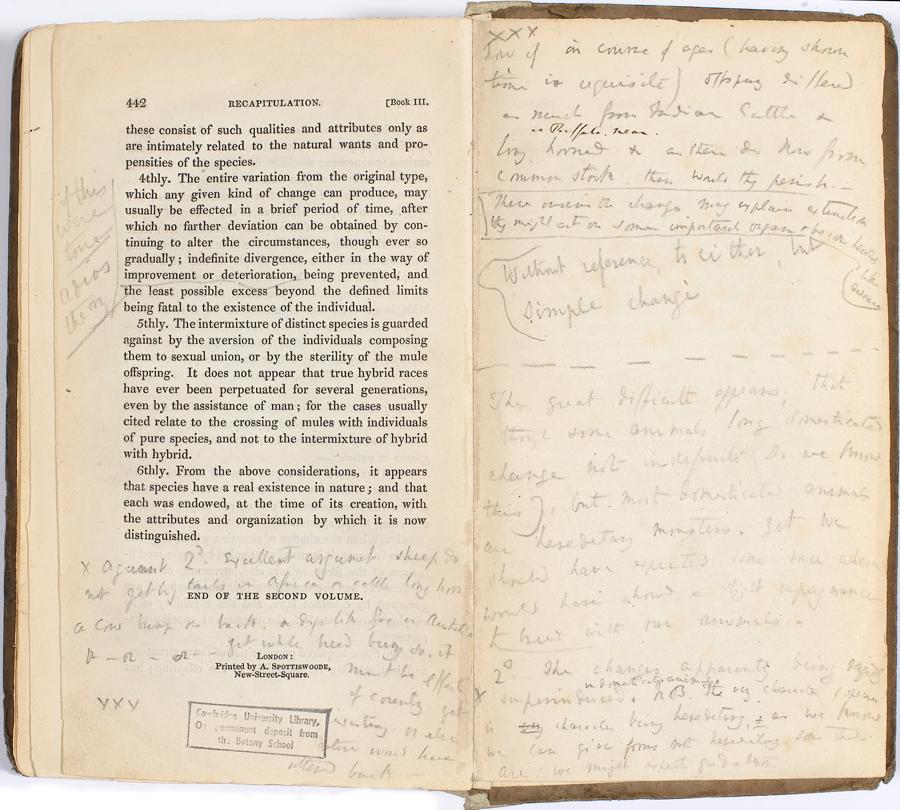 442 RECAPITULATION. [Book III.
these consist of such qualities and attributes only as
are intimately related to the natural wants and pro-
pensities of the species.
4thly. The entire variation from the original type,
which any given kind of change can produce, may
usually be effected in a brief period of time, after
which no farther deviation can be obtained by con-
tinuing to alter the circumstances, though ever so
gradually; indefinite divergence, either in the way of
improvement or deterioration, being prevented, and
the least possible excess beyond the defined limits
being fatal to the existence of the individual.
5thly. The intermixture of distinct species is guarded
against by the aversion of the individuals composing
them to sexual union, or by the sterility of the mule
offspring. It does not appear that true hybrid races
have ever been perpetuated for several generations,
even by the assistance of man; for the cases usually
cited relate to the crossing of mules with individuals
of pure species, and not to the intermixture of hybrid
with hybrid.
6thly. From the above considerations, it appears
that species have a real existence in nature; and that
each was endowed, at the time of its creation, with
the attributes and organization by which it is now
distinguished.
END OF THE SECOND VOLUME.
LONDON:
Printed by A. SPOTTISWOODE,
New-Street-Square.
if this
were
true
adios
theory
x against 2° Excellent argument sheep do
not get big tails in Africa or cattle long horns
Cambridge University Library,
On permanent deposit from
the Botany School
xxx
if in course of ages (having shown
time is requisite) offspring differed
as much from Indian Cattle &
long horned & as these do now from
common stock, then would they perish.—
These unseen changes may explain extinction
they might act on some important organ
Without reference to either, but
simple change
The great difficulty appears, that
though some animals long domesticated
change not indefinite (Do we know
this), but most domesticated animals
are hereditary monsters. Yet we
should have expected some race, when
would have showed a slight repugnance
to breed with our animals.—
2° The changes apparently being
superinduced: in domestic animals NB. The very character of species
is character being hereditary, & as we know
we can give forms not hereditary some that
are: we might expect gradation